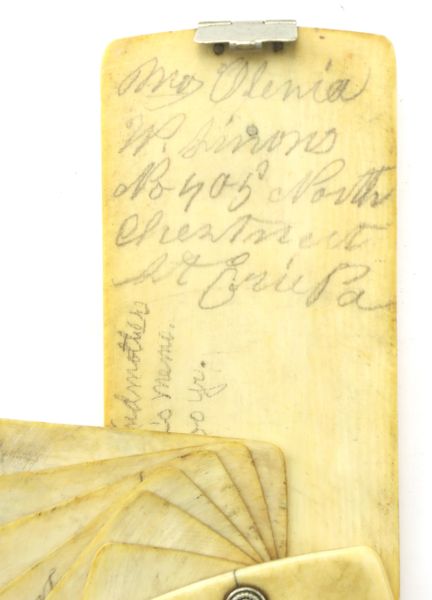 Mrs Olenia
W. Simons
No 405 North
Chestnut
St Erie Pa
ndmother
's memo.
00 yr.